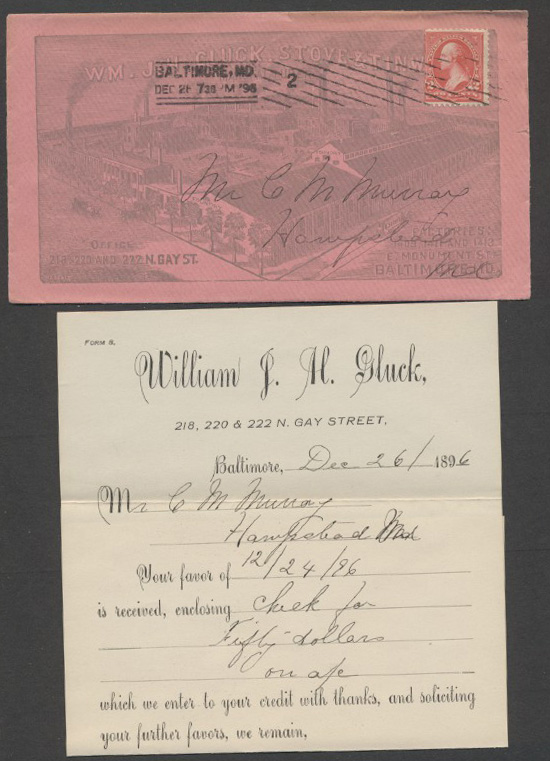 WM. J. H. GLUCK, STOVE & TINW
BALTIMORE, MD.
DEC 26 7 30 PM '96
2
Mr C M Murray
Hampstead
Md.
OFFICE
218-220 AND 222 N. GAY ST.
FACTORIES:
AND 1413
E. MONUMENT ST.
BALTIMORE, MD.
FORM 8.
William J. H. Gluck,
218, 220 & 222 N. GAY STREET.
Baltimore, Dec 26/ 1896
Mr C M Murray
Hampstead Md
Your favor of 12/24/96
is received, enclosing Check for
Fifty dollars
on a/c
which we enter to your credit with thanks, and soliciting
your further favors, we remain,